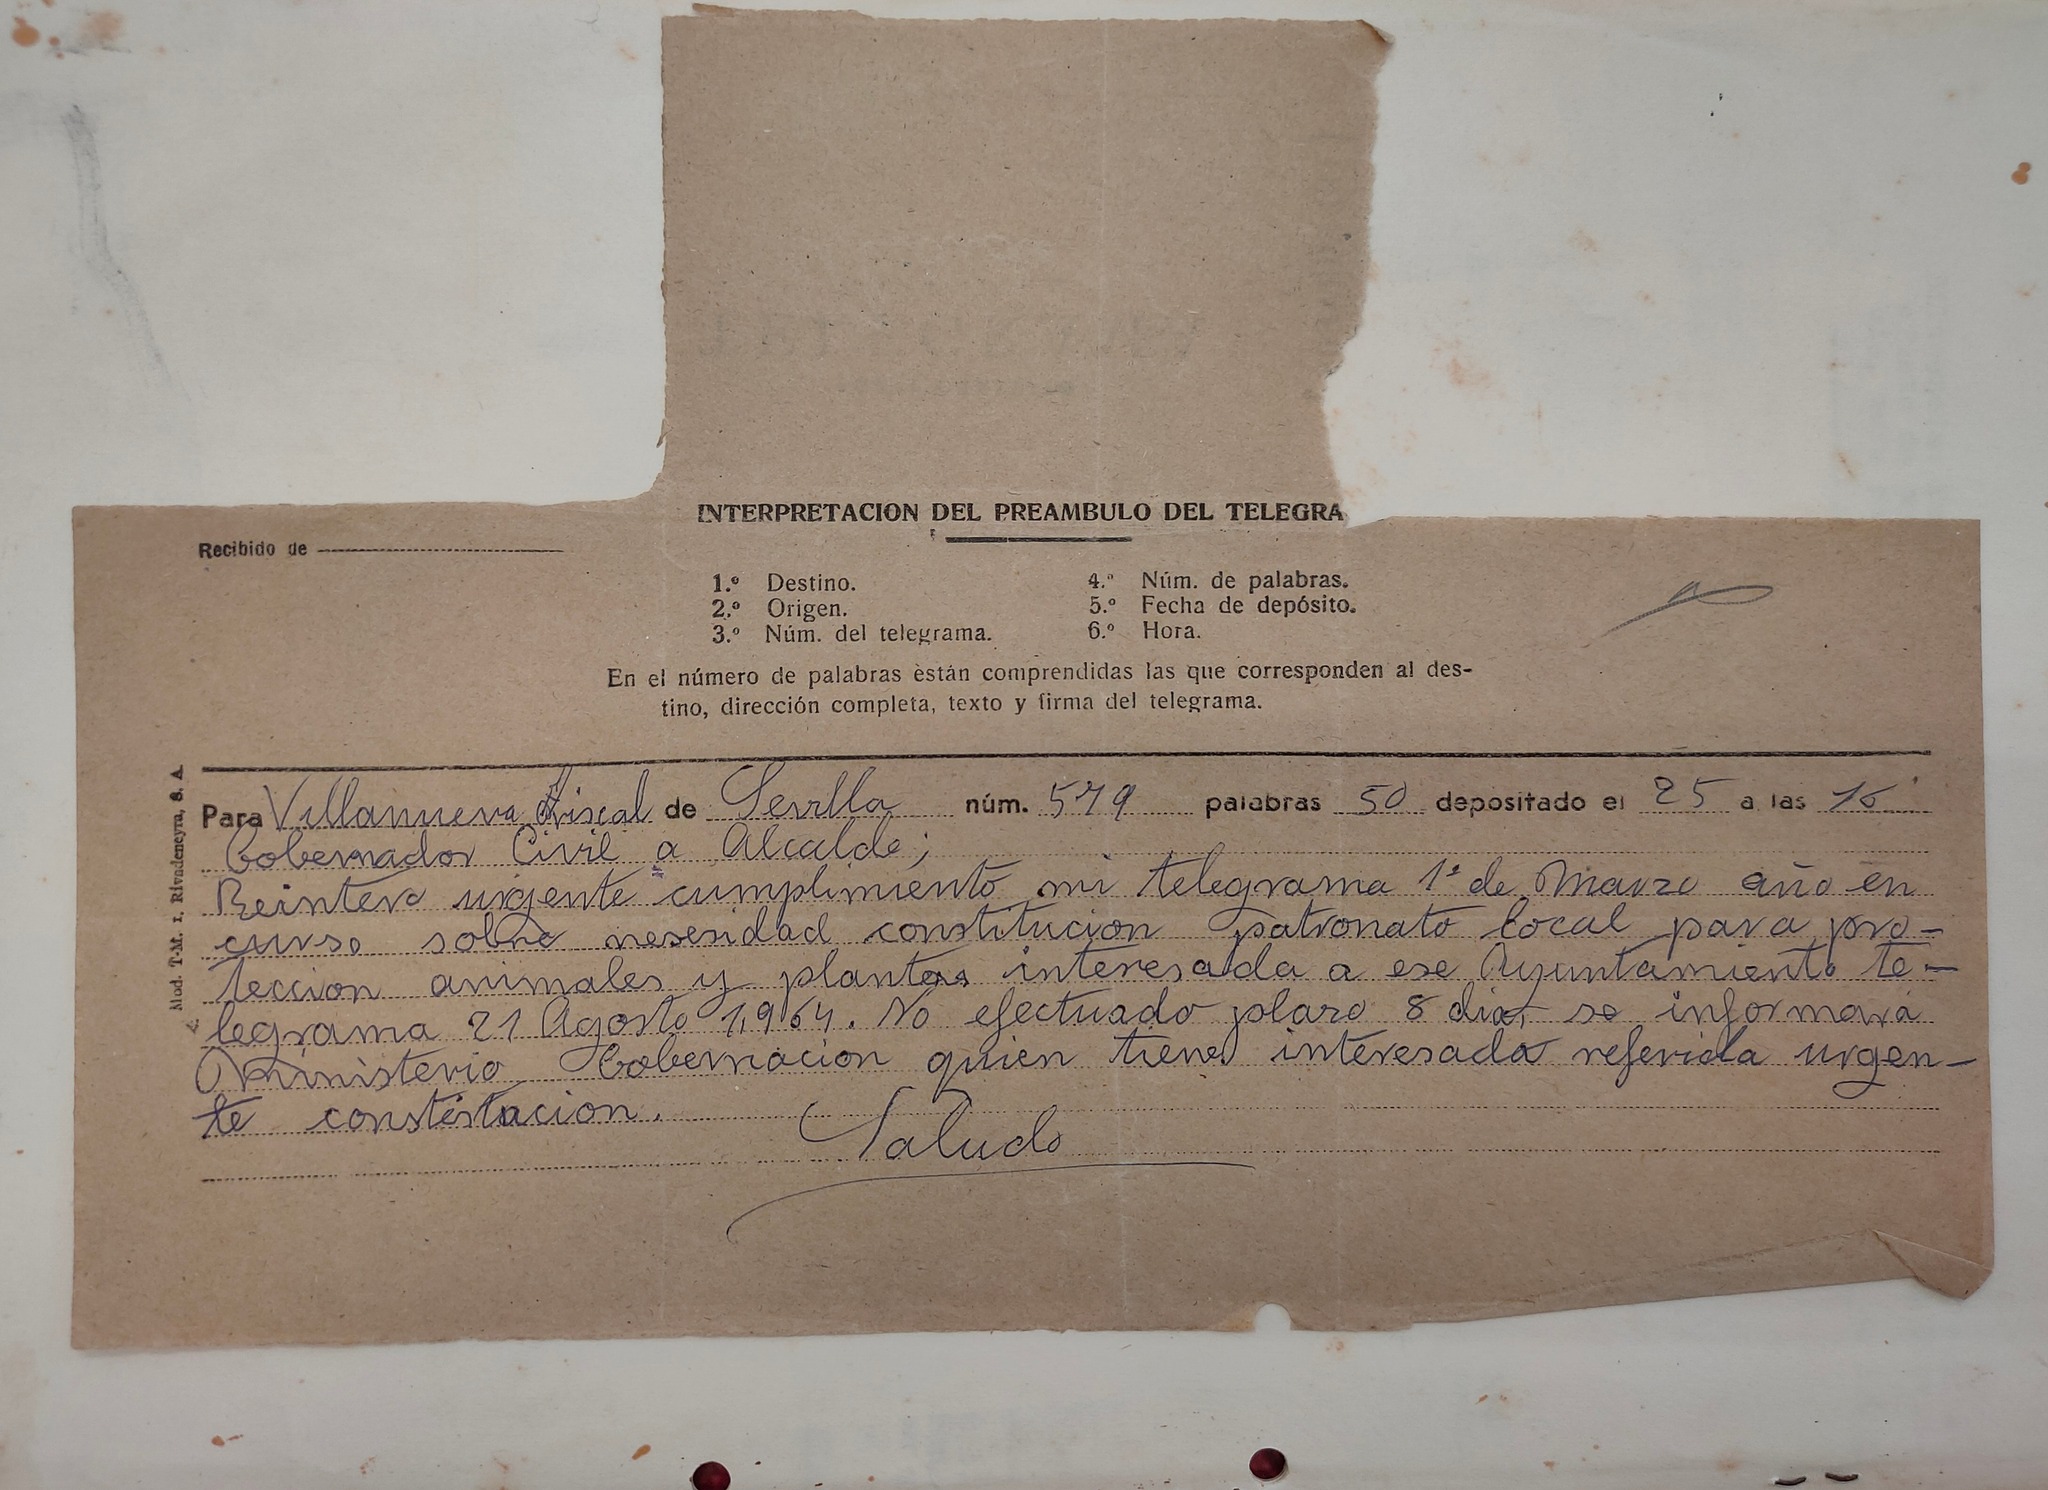 INTERPRETACION DEL PREAMBULO DEL TELEGRA
Recibido de
1.º Destino. 4.º Núm. de palabras.
2.º Origen. 5.º Fecha de depósito.
3.º Núm. del telegrama. 6.º Hora.
En el número de palabras están comprendidas las que corresponden al des-
tino, dirección completa, texto y firma del telegrama.
Mod. T-M. 1, Rivadeneyra, S. A.
Para Villanueva Ariscal de Sevilla núm. 579 palabras 50 depositado el 25 a las 16
Gobernador Civil a Alcalde;
Reintero urgente cumplimiento mi telegrama 1º de Marzo año en
curso sobre nesesidad constitucion patronato local para pro-
teccion animales y plantas interesada a ese Ayuntamiento te-
legrama 21 Agosto 1,964. No efectuado plazo 8 dias se informará
Ministerio Gobernacion quien tiene interesada referida urgen-
te constestacion.
Saludo